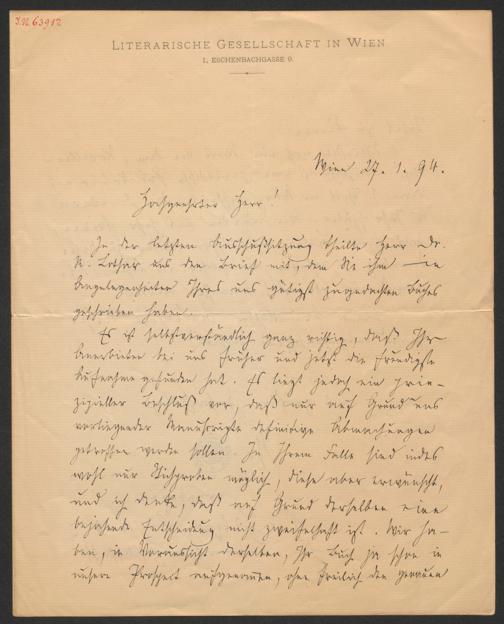 I.N. 63912
LITERARISCHE GESELLSCHAFT IN WIEN
I., ESCHENBACHGASSE 9.
Wien 27. 1. 94.
Hochgeehrter Herr!
In der letzten Ausschußsitzung theilte Herr Dr.
R. Lothar uns den Brief mit, dem Sie ihm in
Angelegenheiten Ihres uns gütigst zugedachten Buches
geschrieben haben.
Es ist selbstverständlich ganz richtig, daß Ihr
Anerbieten bei uns früher und jetzt die freudigste
Aufnahme gefunden hat. Es liegt jedoch ein prin-
zipieller Beschluß vor, daß nur auf Grund uns
vorliegender Manuscripte definitive Abmachungen
getroffen werden sollen. In Ihrem Falle sind indes
wohl nur Stichproben möglich, diese aber erwünscht,
und ich denke, daß auf Grund derselben eine
bejahende Entscheidung nicht zweifelhaft ist. Wir ha-
ben, in Voraussicht derselben, Ihr Buch ja schon in
unsere Prospect aufgenommen, ohne freilich den genauen